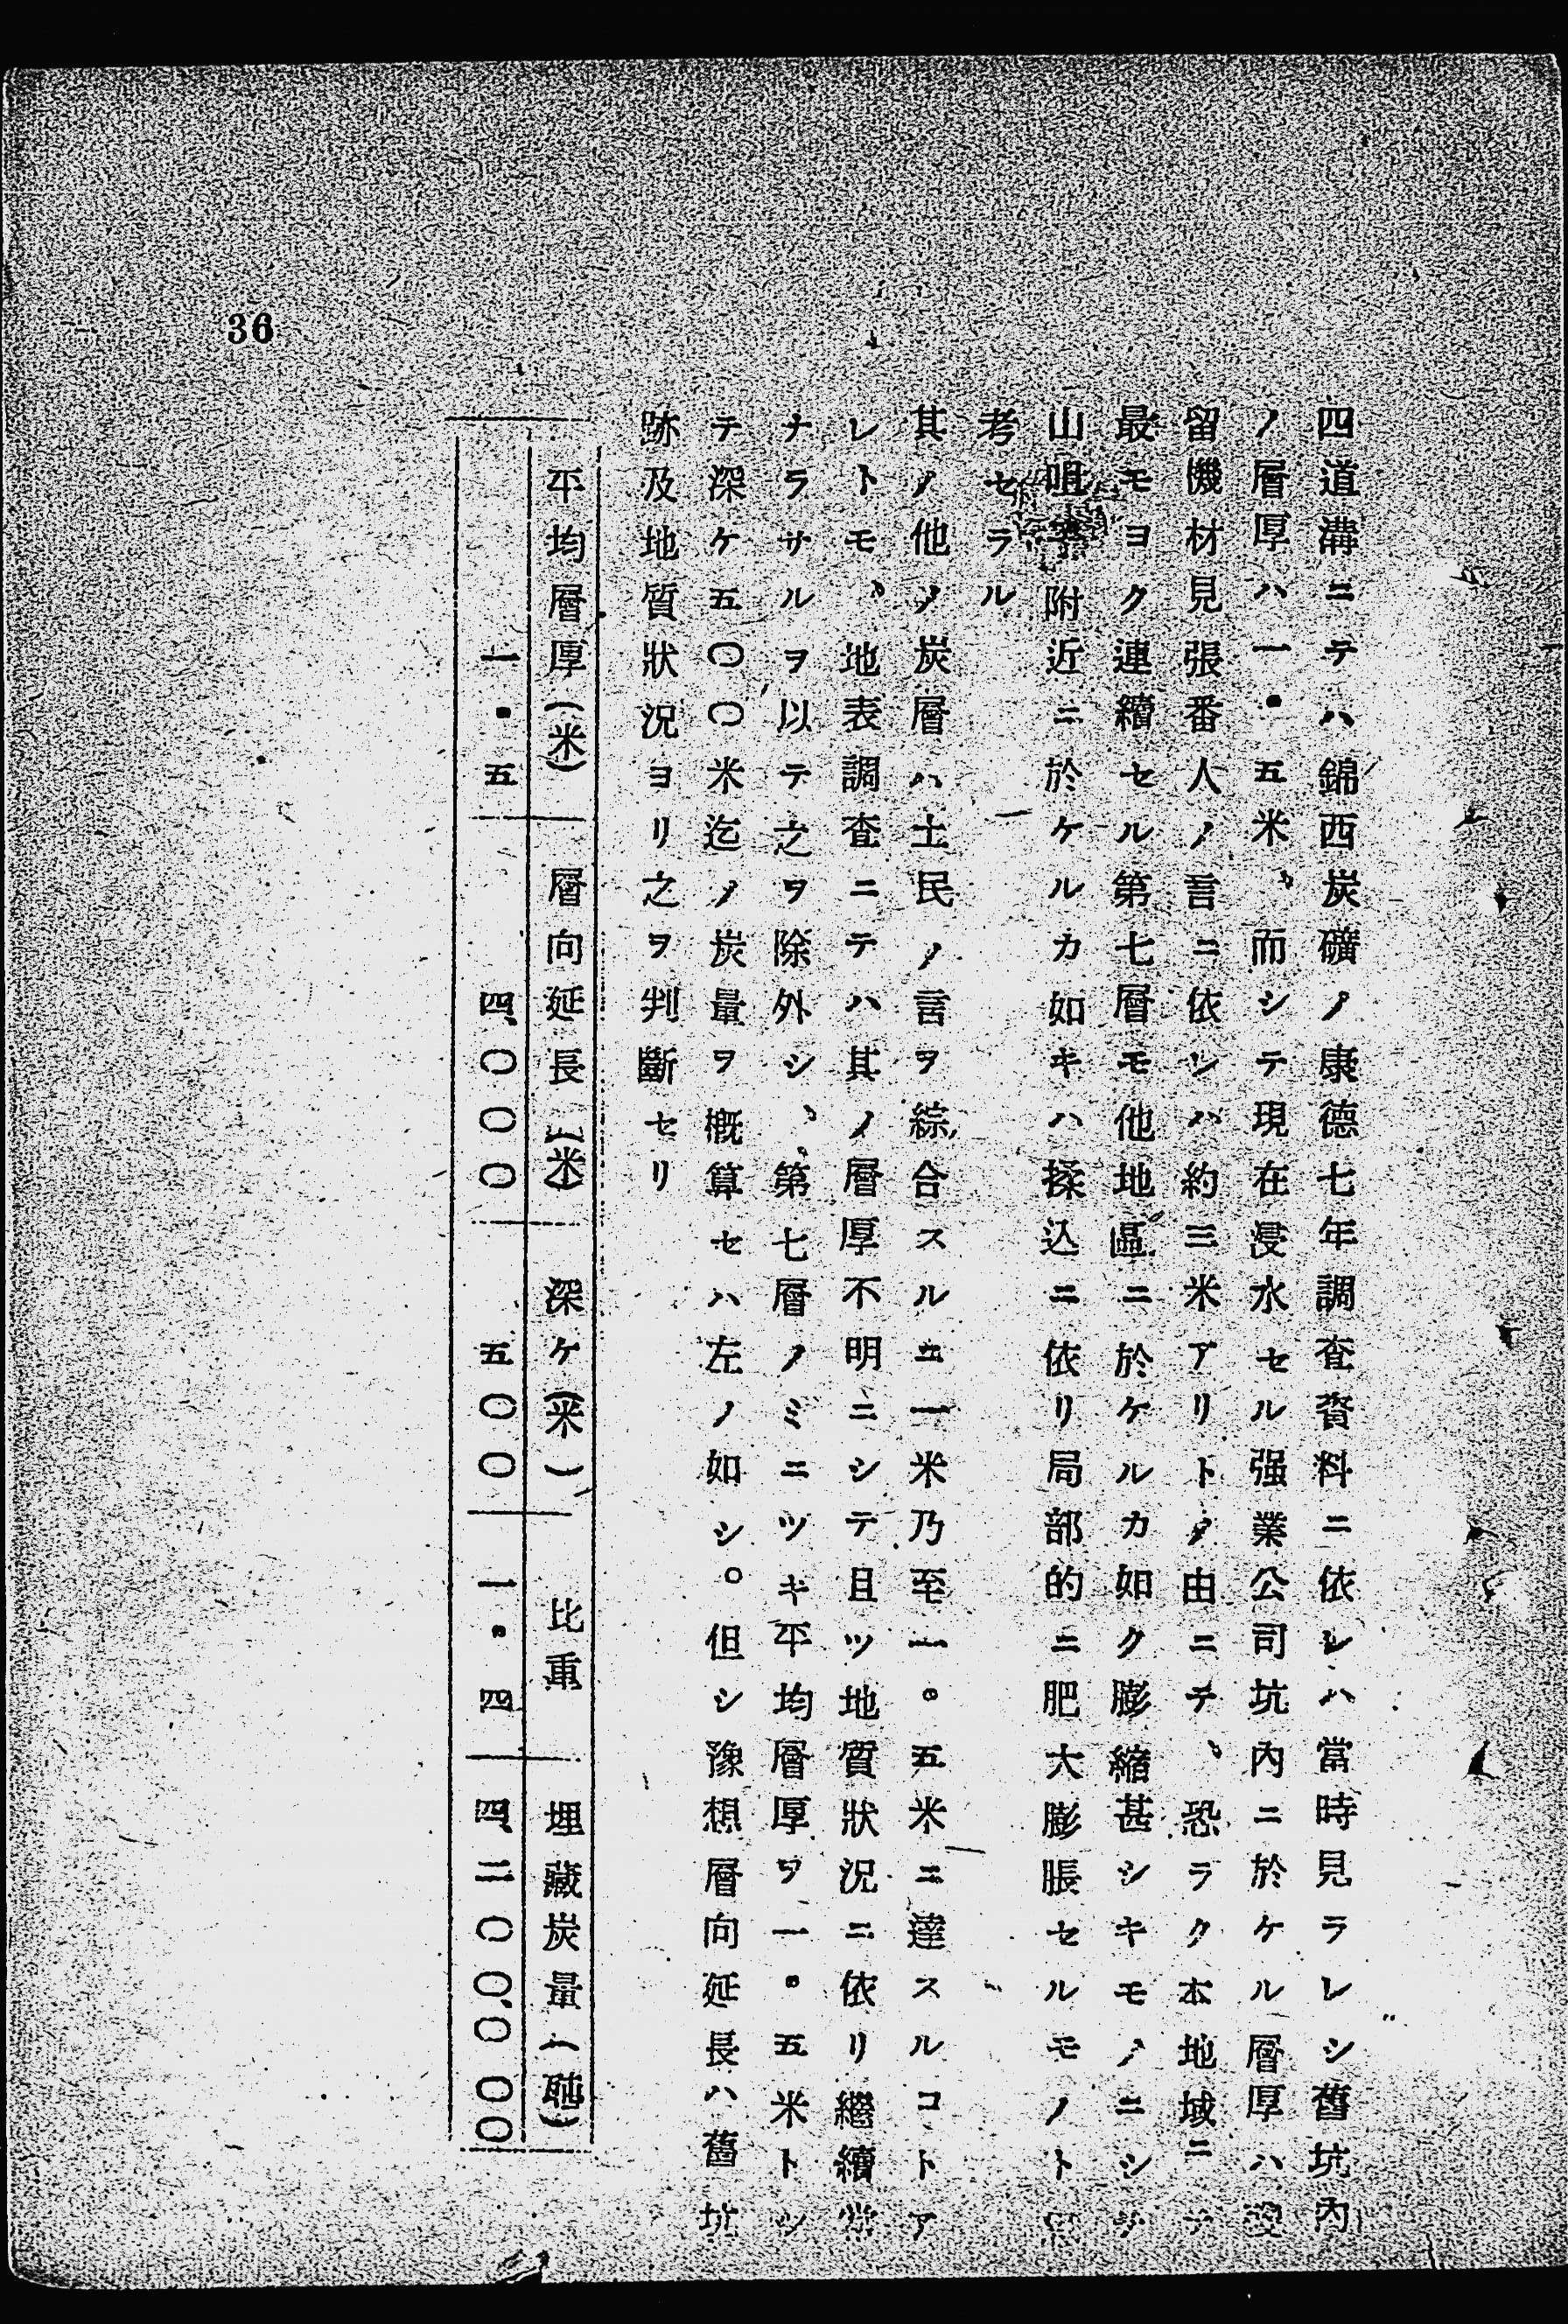 四道溝ニテハ錦西炭礦ノ康德七年調査資料ニ依レハ當時見ラレシ舊坑內
ノ層厚ハ一・五米、而シテ現在浸水セル强業公司坑內ニ於ケル層厚ハ
留機材見張番人ノ言ニ依レハ約三米アリトノ由ニテ、恐ラク本地域ニテ
最モヨク連續セル第七層モ他地區ニ於ケルカ如ク膨縮甚シキモノニシテ
山咀子附近ニ於ケルカ如キハ揉込ニ依リ局部的ニ肥大膨脹セルモノト
考セラル
其ノ他ノ炭層ハ土民ノ言ヲ綜合スルニ一米乃至一。五米ニ達スルコトア
レトモ、地表調査ニテハ其ノ層厚不明ニシテ且ツ地質狀況ニ依リ繼續
ナラサルヲ以テ之ヲ除外シ、第七層ノミニツキ平均層厚ヲ一。五米トシ
テ深ケ五〇〇米迄ノ炭量ヲ概算セハ左ノ如シ。但シ豫想層向延長ハ舊坑
跡及地質狀況ヨリ之ヲ判斷セリ
平均層厚(米) 層向延長(米) 深ケ(米) 比重 埋藏炭量(瓲)
一・五 四、〇〇〇 五〇〇 一・四 四、二〇〇、〇〇〇
36